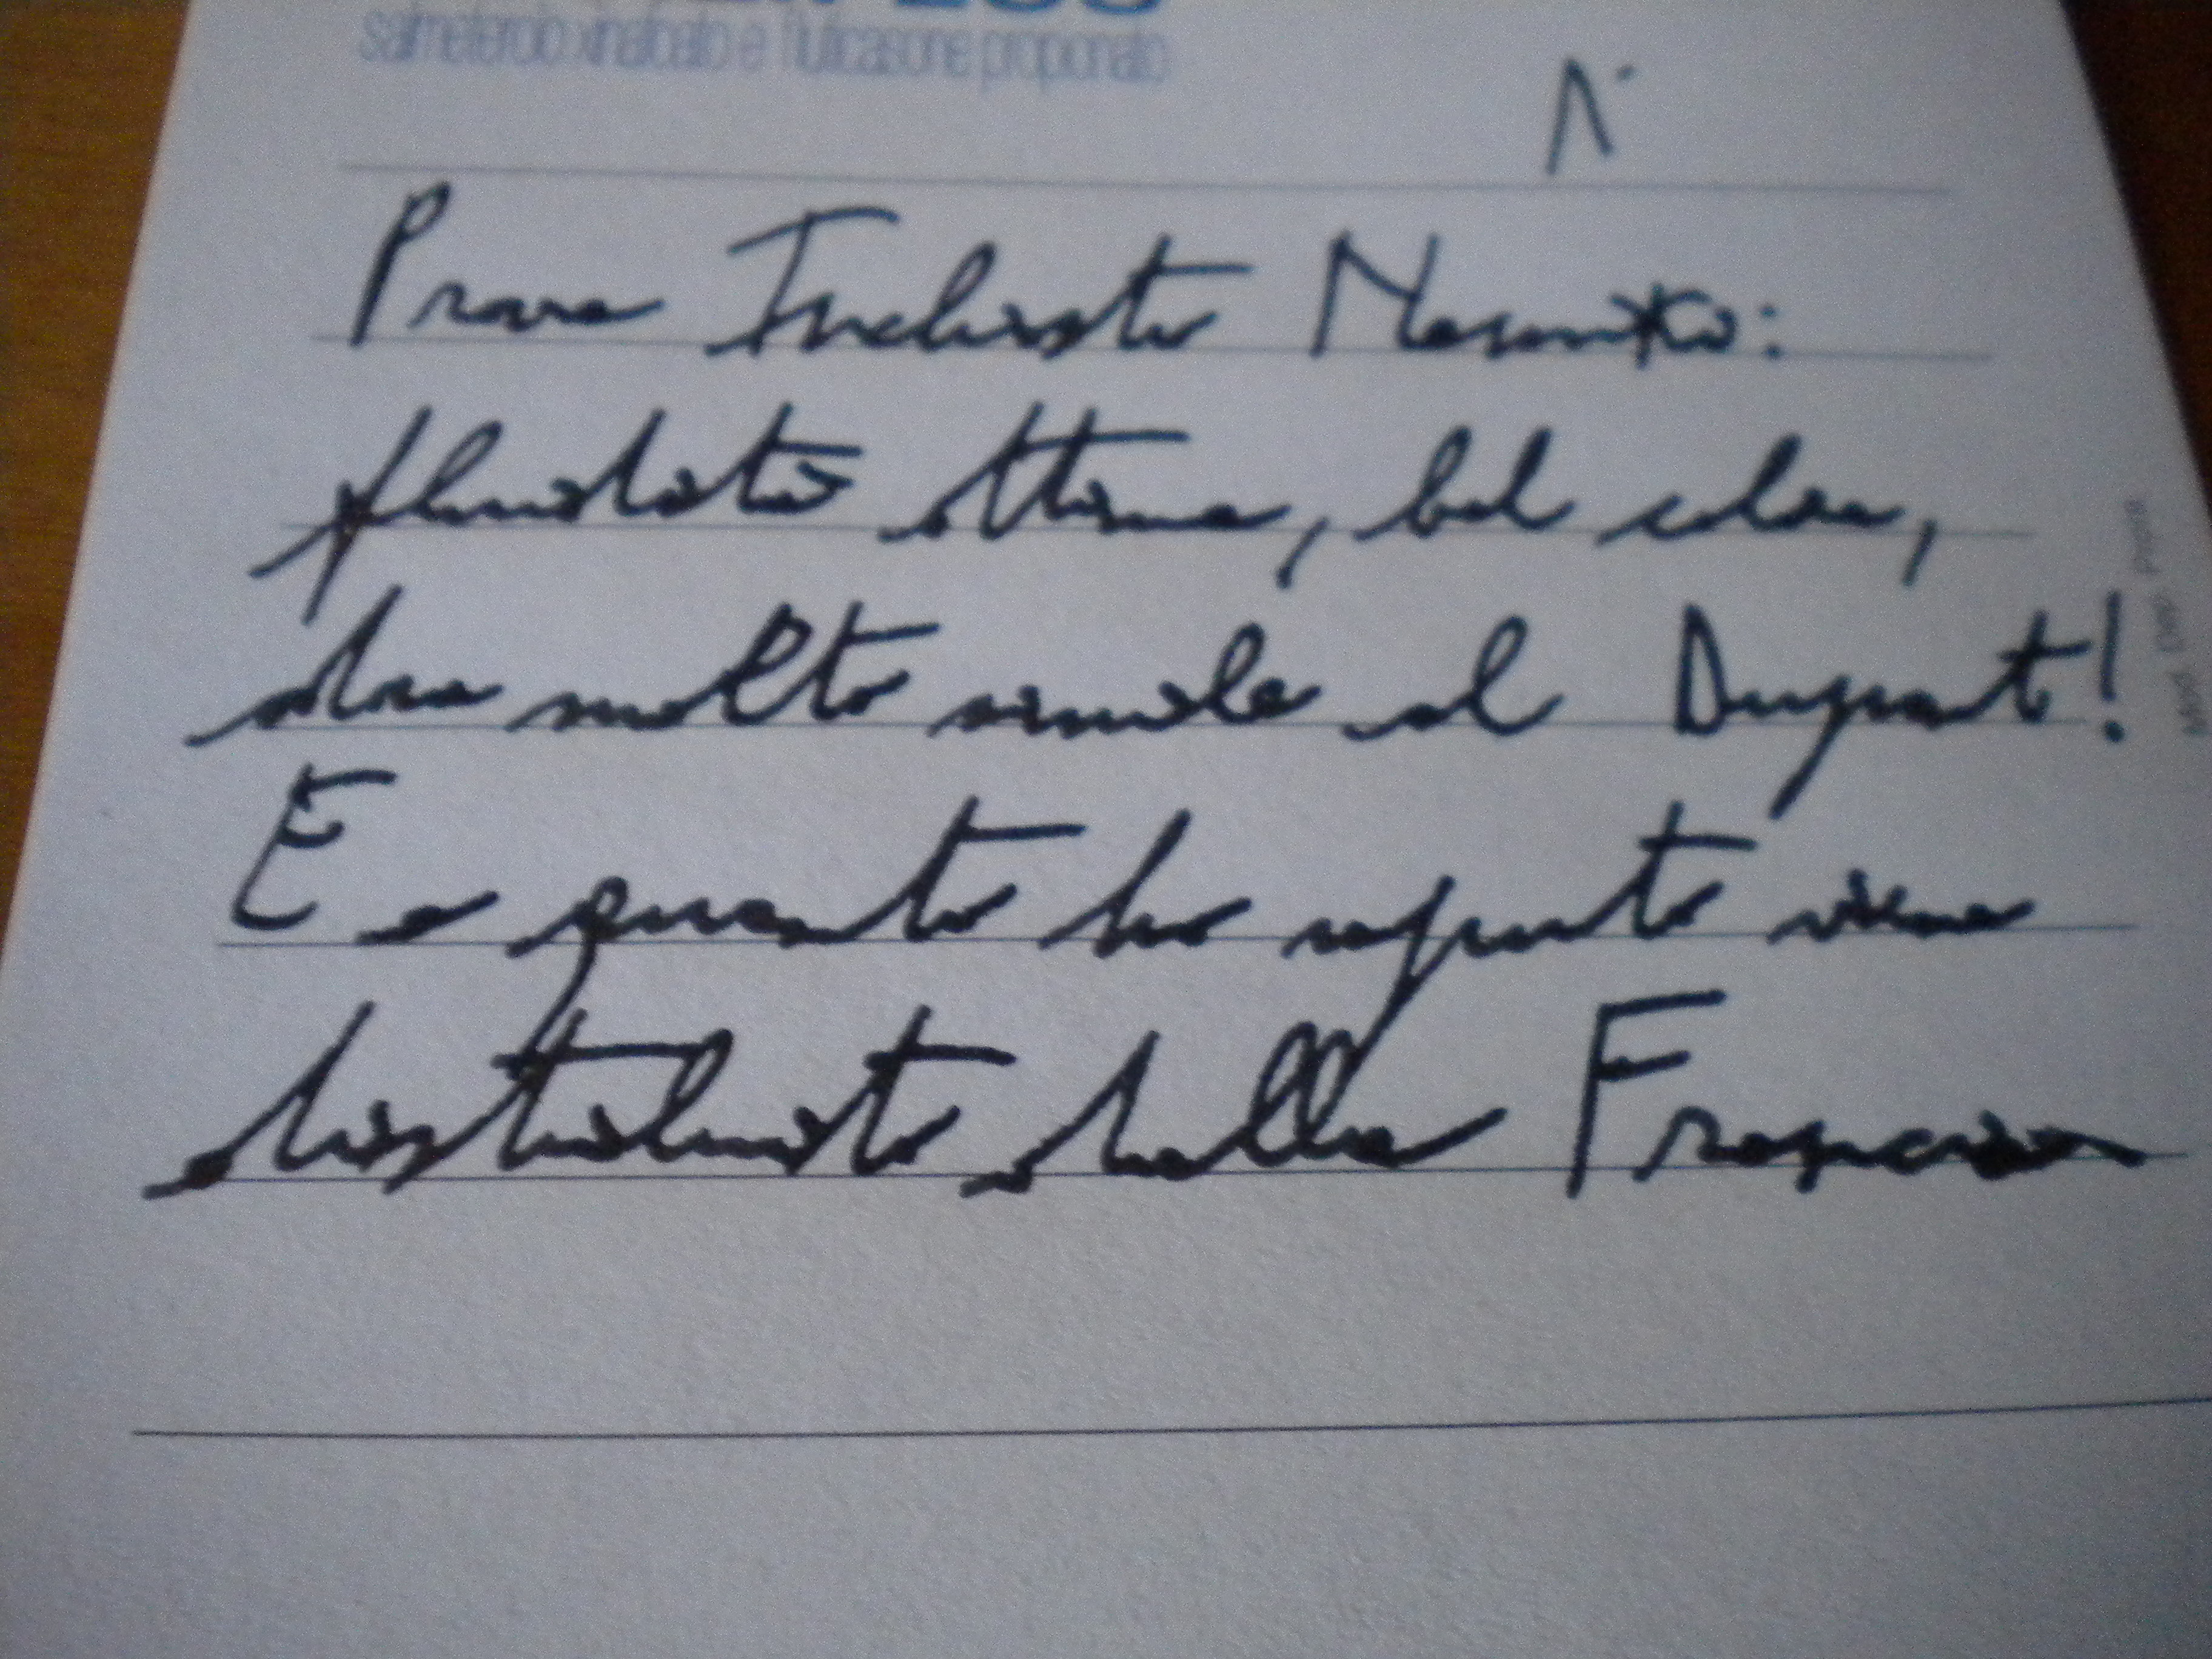 salmeterolo xinafoato e fluticasone propionato
Prova Inchiostro
fluidità ottima, bel colore,
molto simile al Dupont!
E a quanto ho saputo viene
distribuito dalla Francia